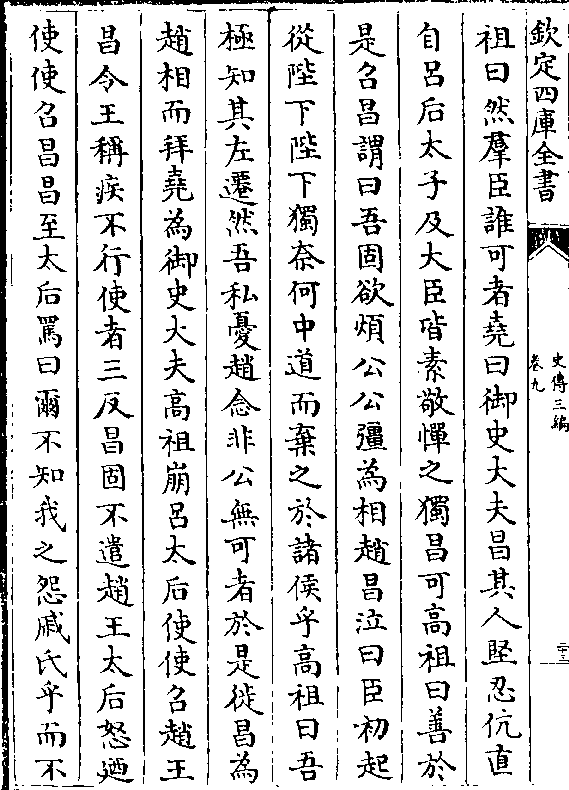 欽定四庫全書
史傳三編
卷九
二十三
祖曰然羣臣誰可者堯曰御史大夫昌其人堅忍伉直
自呂后太子及大臣皆素敬憚之獨昌可高祖曰善於
是召昌謂曰吾固欲煩公公彊為相趙昌泣曰臣初起
從陛下陛下獨奈何中道而棄之於諸侯乎高祖曰吾
極知其左遷然吾私憂趙念非公無可者於是徙昌為
趙相而拜堯為御史大夫高祖崩呂太后使使召趙王
昌令王稱疾不行使者三反昌固不遣趙王太后怒廼
使使召昌昌至太后罵曰爾不知我之怨戚氏乎而不